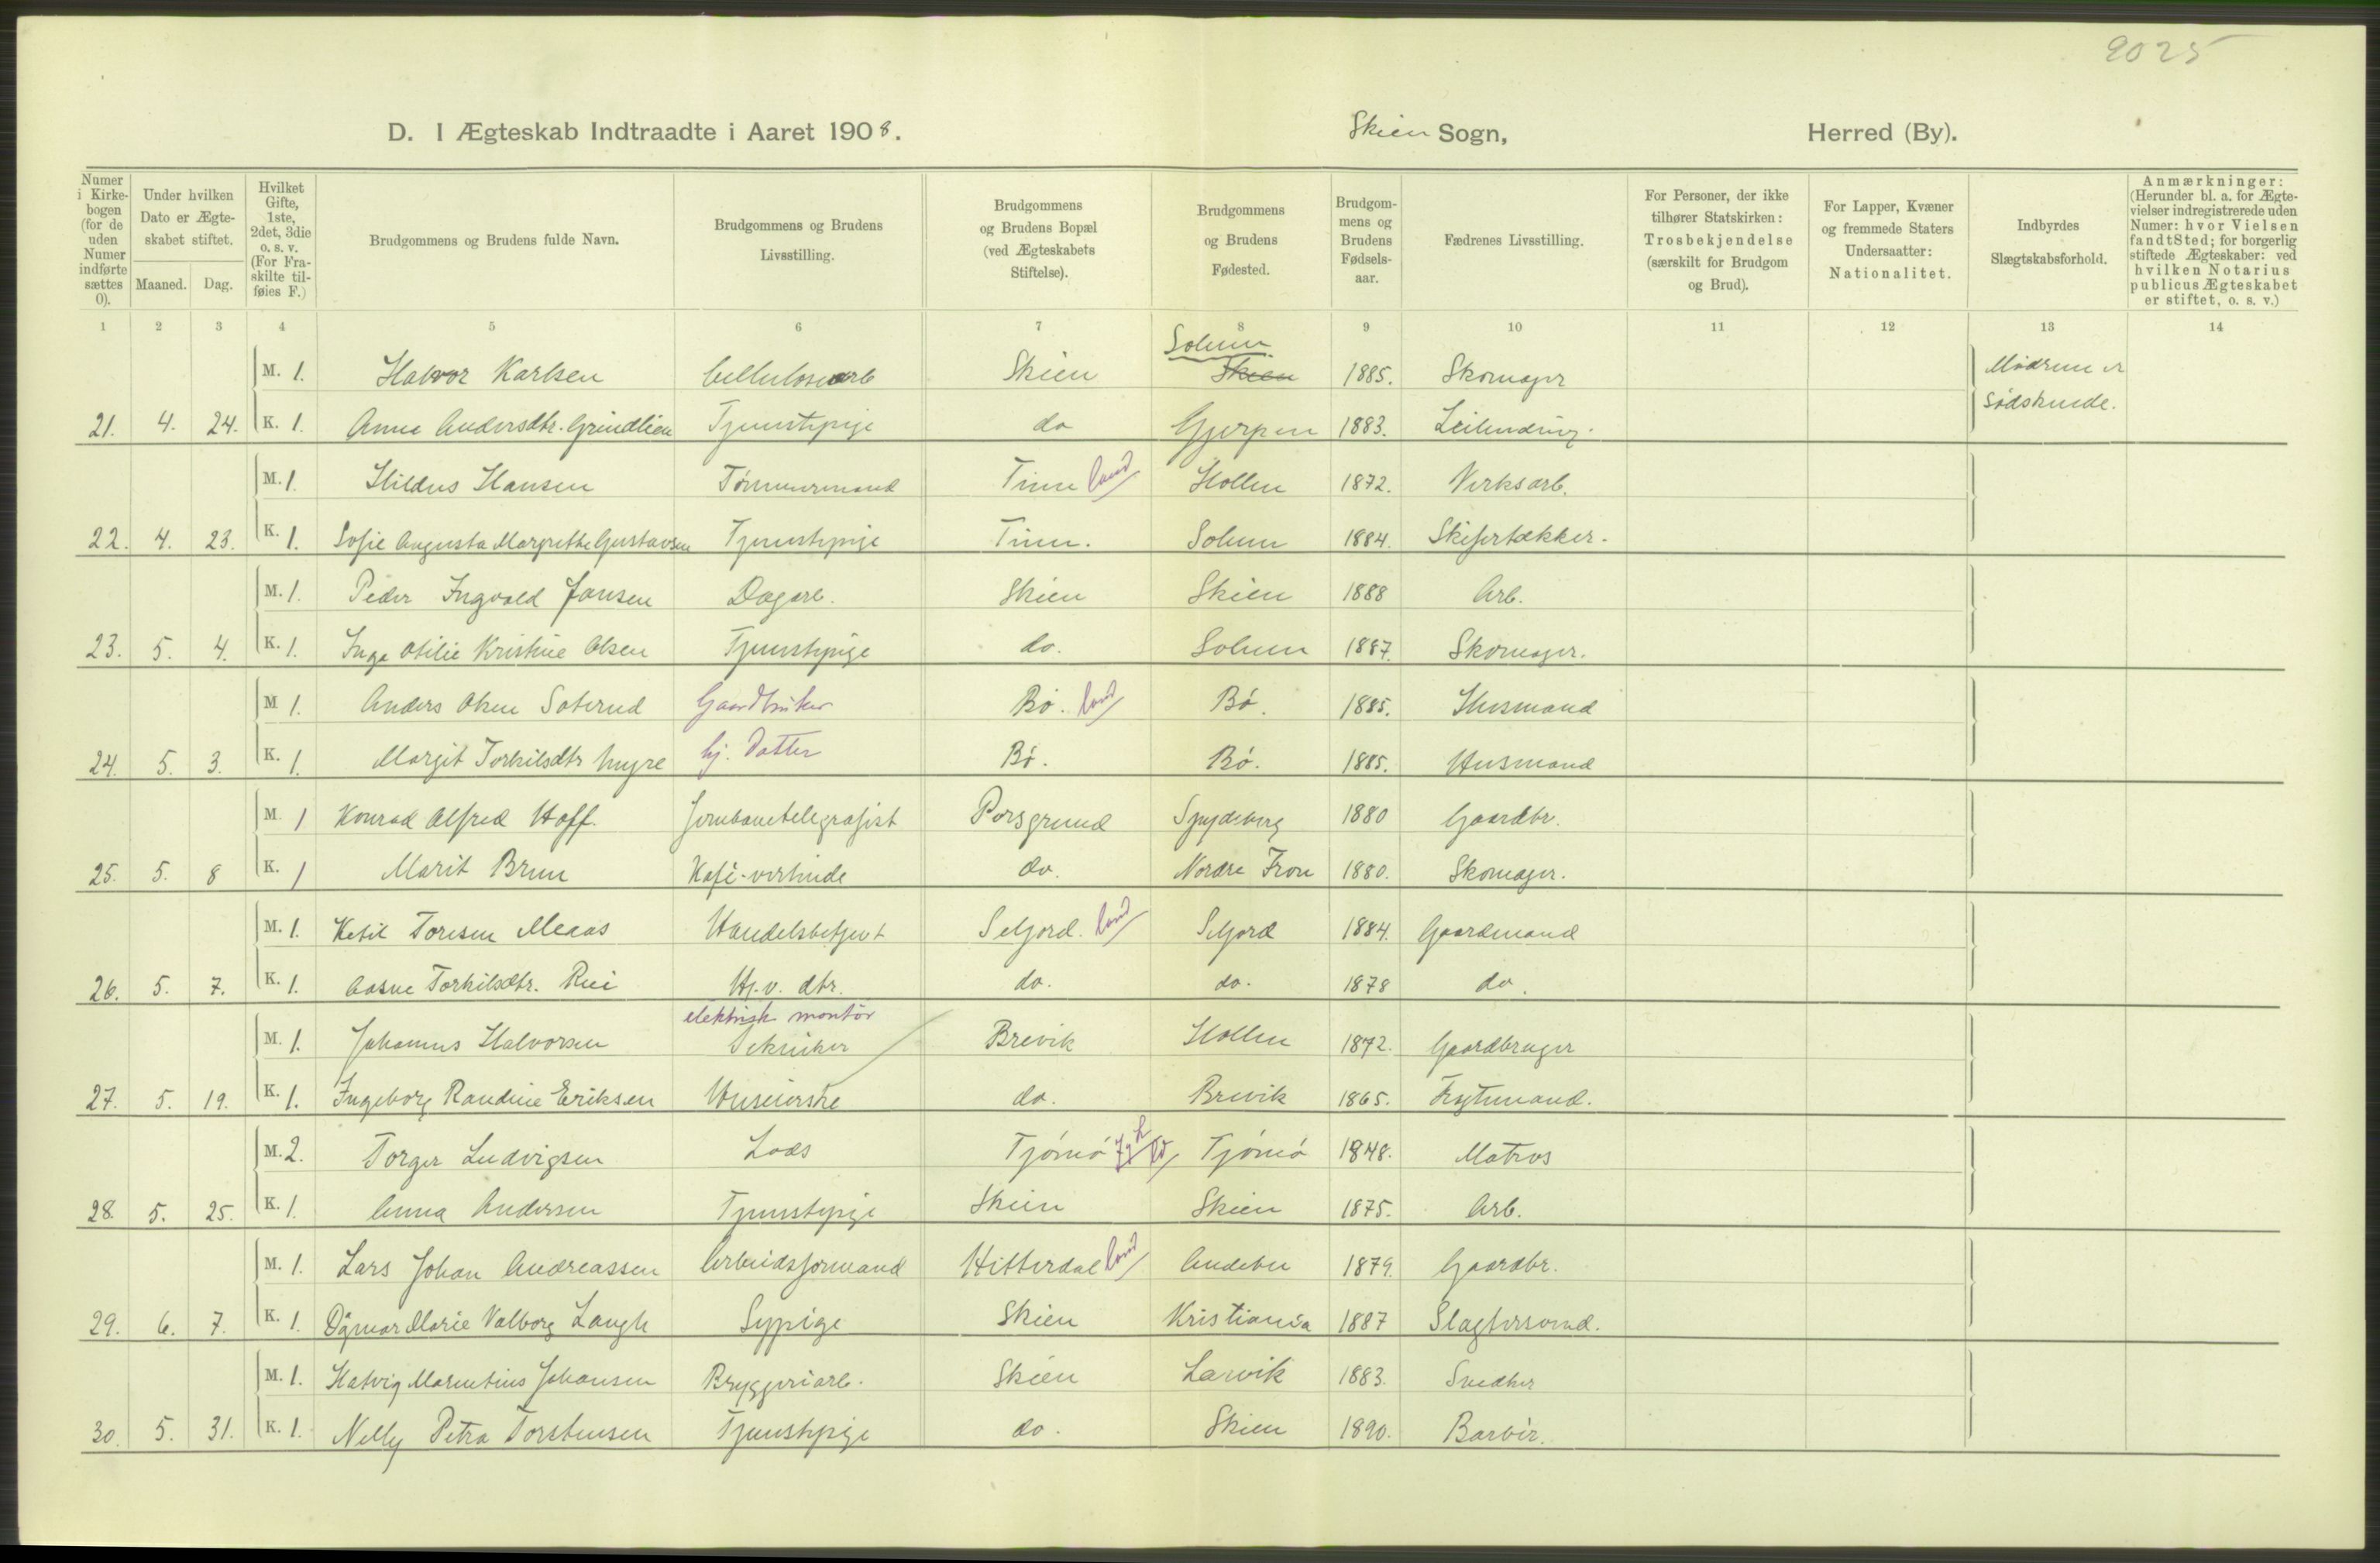 2025
D. I Ægteskab Indtraadte i Aaret 1908. Skien Sogn, Herred (By).
Numer i Kirkebogen (for de uden Numer indførte sættes 0).
Under hvilken Dato er Ægteskabet stiftet.
Maaned. Dag.
Hvilket Gifte, 1ste, 2det, 3die o. s. v. (For Fraskilte tilføies F.)
Brudgommens og Brudens fulde Navn.
Brudgommens og Brudens Livsstilling.
Brudgommens og Brudens Bopæl (ved Ægteskabets Stiftelse).
Brudgommens og Brudens Fødested.
Brudgommens og Brudens Fødselsaar.
Fædrenes Livsstilling.
For Personer, der ikke tilhører Statskirken: Trosbekjendelse (særskilt for Brudgom og Brud).
For Lapper, Kvæner og fremmede Staters Undersaatter: Nationalitet.
Indbyrdes Slægtskabsforhold.
Anmærkninger: (Herunder bl. a. for Ægtevielser indregistrerede uden Numer: hvor Vielsen fandt Sted; for borgerlig stiftede Ægteskaber: ved hvilken Notarius publicus Ægteskabet er stiftet, o. s. v.)
1 2 3 4 5 6 7 8 9 10 11 12 13 14
M. 1. Halvor Karlsen Cellulosearb Skien Solum Skien 1885. Skomager Mødrene er
21. 4. 24. K. 1. Anne Andersdtr. Grindlien Tjenestepige do Gjerpen 1883. Leilending. Sødskende.
M. 1. Hildus Hansen Tømmermand Tinn land Hollen 1872. Verksarb.
22. 4. 23. K. 1. Sofie Augusta Margrethe Gustavsen Tjenestepige Tinn. Solum 1884. Skifertækker.
M. 1. Peder Ingvald Jansen Dagarb. Skien Skien 1888 Arb.
23. 5. 4. K. 1. Inga Otilie Kristine Olsen Tjenestepige do. Solum 1887. Skomager.
M 1. Anders Olsen Saterud Gaardbruker Bø. land Bø. 1885. Husmand
24. 5. 3. K. 1. Margit Torkilsdtr Myre hj. Datter Bø. Bø. 1885. Husmand
M. 1 Konrad Alfred Hoff. Jernbanetelegrafist Porsgrund Spydeberg 1880 Gaardbr.
25. 5. 8 K. 1 Marit Brun Kafé-vertinde do. Nordre Fron 1880. Skomager.
M. 1. Ketil Toresen Meaas Handelsbetjent Seljord. land Seljord 1884. Gaardmand
26. 5. 7. K. 1. Aasne Torkilsdtr. Rui Hj. v. dtr. do. do. 1878 do.
elektrisk montør
M. 1. Johannes Halvorsen Tekniker Brevik Hollen 1872. Gaardbruger
27. 5. 19. K. 1. Ingeborg Randine Eriksen Huseierske do. Brevik 1865. Fragtemand.
M. 2. Torger Ludvigsen Lods Tjømø Tjømø 1848. Matros
28. 5. 25. K. 1. Anna Andersen Tjenestepige Skien Skien 1875. Arb.
M. 1. Lars Johan Andreassen Arbeidsformand Hitterdal land Andebu 1879. Gaardbr.
29. 6. 7. K. 1. Dagmar Marie Valborg Langli Sypige Skien Kristiania 1887 Slagtersvend.
M. 1. Hatvig Marentius Johansen Bryggeriarb. Skien Larvik 1883. Snedker
30. 5. 31. K. 1. Nelly Petra Torstensen Tjenestepige do. Skien 1890. Barbér.